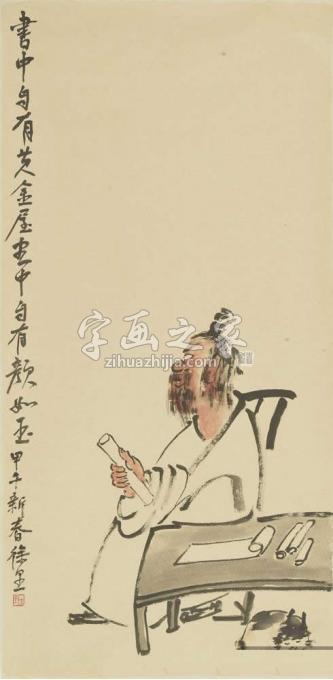 書中自有黄金屋書中自有颜如玉甲午新春徐里
字画之家
zihuazhijia.com